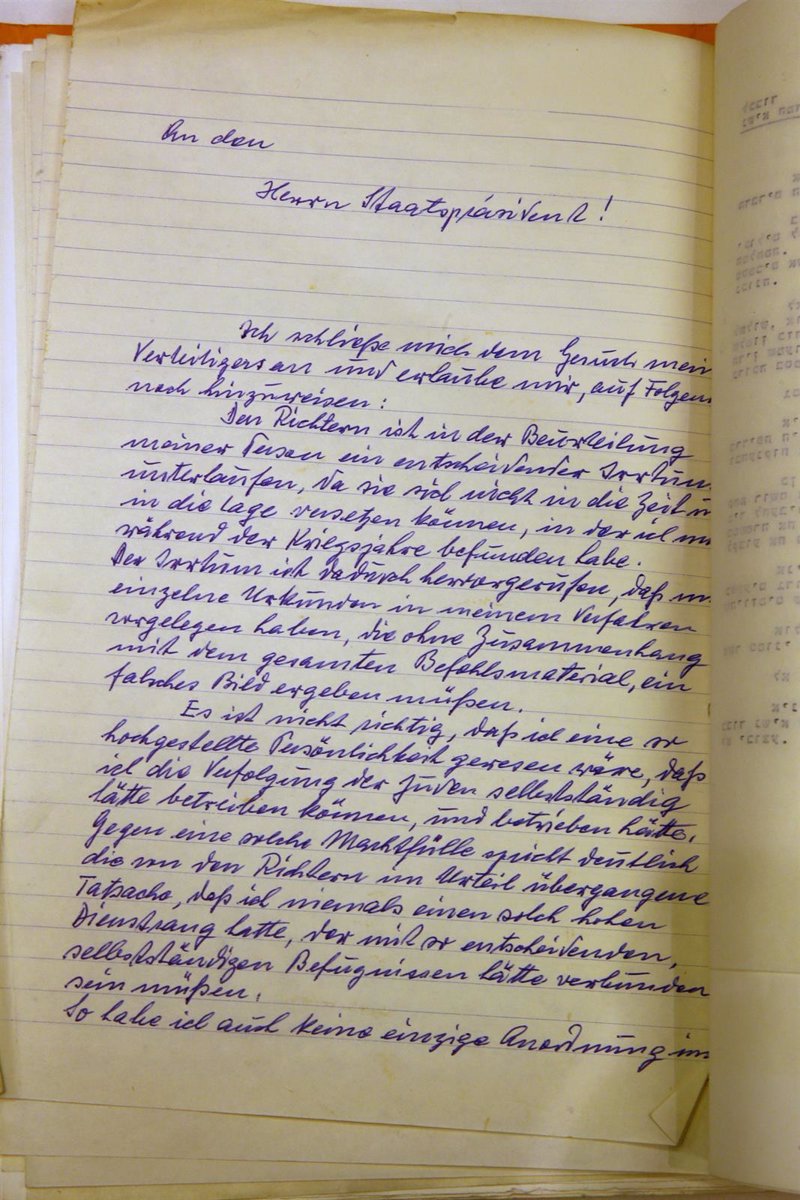 An den
Herrn Staatspräsident!
Ich schließe mich dem Gesuch mein
Verteitigers an und erlaube mir, auf Folgen
noch hinzuweisen:
Den Richtern ist in der Beurteilung
meiner Person ein entscheidender Irrtum
unterlaufen, da sie sich nicht in die Zeit u
in die Lage versetzen können, in der ich m
während der Kriegsjahre befunden habe.
Der Irrtum ist dadurch hervorgerufen, daß m
einzelne Urkunden in meinem Verfahren
vorgelegen haben, die ohne Zusammenhang
mit dem gesamten Befehlsmaterial, ein
falsches Bild ergeben müßen.
Es ist nicht richtig, daß ich eine so
hochgestellte Persönlichkeit gewesen wäre, daß
ich die Verfolgung der Juden selbstständig
hätte betreiben können, und betrieben hätte.
Gegen eine solche Machtfülle spricht deutlich
die von den Richtern im Urteil übergangene
Tatsache, daß ich niemals einen solch hohen
Dienstrang hatte, der mit so entscheidenden,
selbstständigen Befugnissen hätte verbunden
sein müßen.
So habe ich auch keine einzige Anordnung im